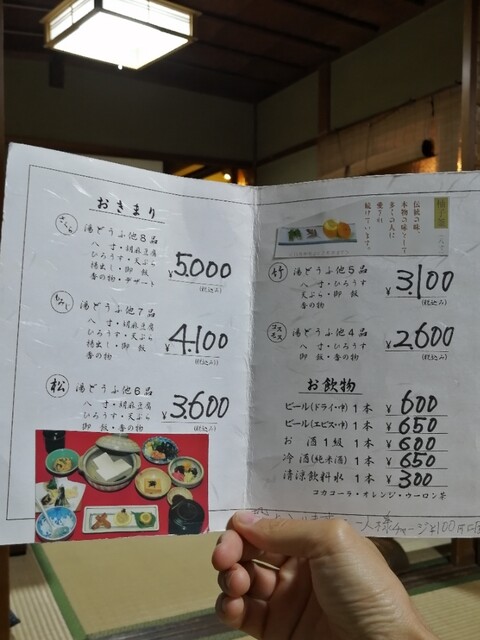 おきまり
さくら 湯どうふ他8品
八寸・胡麻豆腐
ひろうす・天ぷら
揚出し・御飯
香の物・デザート
¥5,000
(税込み)
もみじ 湯どうふ他7品
八寸・胡麻豆腐
ひろうす・天ぷら
揚出し・御飯
香の物
¥4,100
(税込み)
松 湯どうふ他6品
八寸・胡麻豆腐
ひろうす・天ぷら
御飯・香の物
¥3,600
(税込み)
伝統の味、
本物の味として
多くの人に
愛され
続けています。
八寸
竹 湯どうふ他5品
八寸・ひろうす
天ぷら・御飯
香の物
¥3,100
(税込み)
コスモス 湯どうふ他4品
ひろうす・天ぷら
御飯・香の物
¥2,600
(税込み)
お飲物
ビール(ドライ・中) 1本 ¥600
ビール(エビス・中) 1本 ¥650
お酒1級 1本 ¥600
冷酒(純米酒) 1本 ¥650
清涼飲料水 1本 ¥300
コカコーラ・オレンジ・ウーロン茶
一人様チャージ¥100円